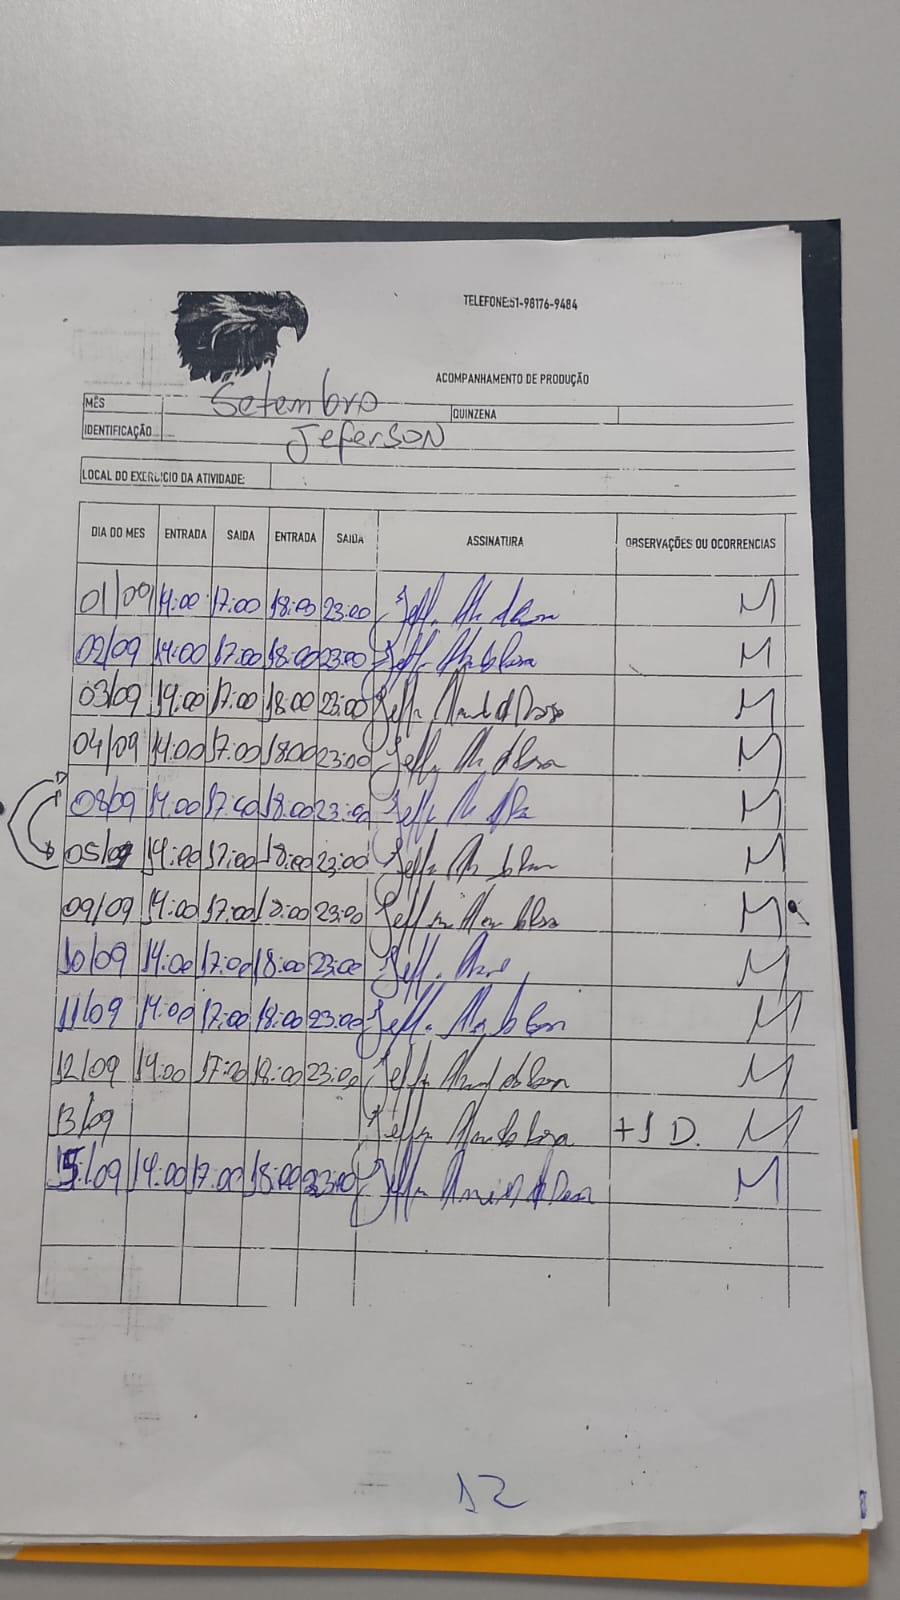 TELEFONE:51-98176-9484
ACOMPANHAMENTO DE PRODUÇÃO
MÊS Setembro QUINZENA
IDENTIFICAÇÃO Jeferson
LOCAL DO EXERCICIO DA ATIVIDADE:
DIA DO MES ENTRADA SAIDA ENTRADA SAIDA ASSINATURA OBSERVAÇÕES OU OCORRENCIAS
01/09 14:00 17:00 18:00 23:00 M
02/09 14:00 17:00 18:00 23:00 M
03/09 14:00 17:00 18:00 23:00 M
04/09 14:00 17:00 18:00 23:00 M
08/09 14:00 18:00 23:00 M
05/09 14:00 17:00 18:00 23:00 M
09/09 14:00 17:00 18:00 23:00 M
10/09 14:00 17:00 18:00 23:00 M
11/09 14:00 17:00 18:00 23:00 M
12/09 14:00 17:00 18:00 23:00 M
13/09 +1 D. M
15/09 14:00 17:00 18:00 23:00 M
12